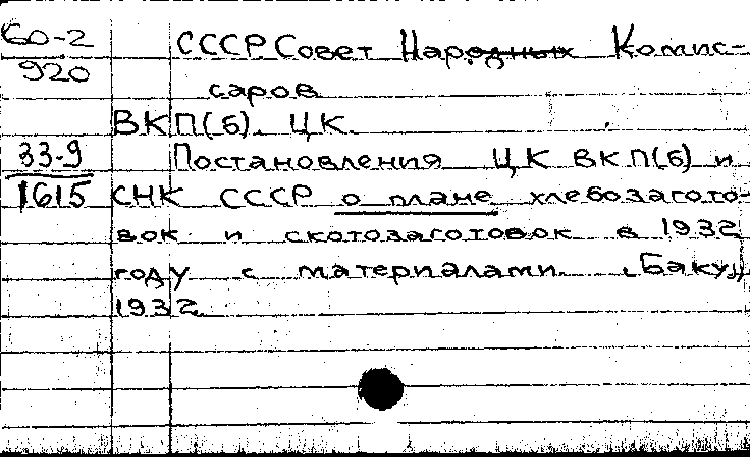 60-2
920
СССР. Совет Народных Комис-
саров
ВКП(б). ЦК.
33-9
1615
Постановления ЦК ВКП(б) и
СНК СССР о плане хлебозагото-
вок и скотозаготовок в 1932
году с материалами. Баку,
1932